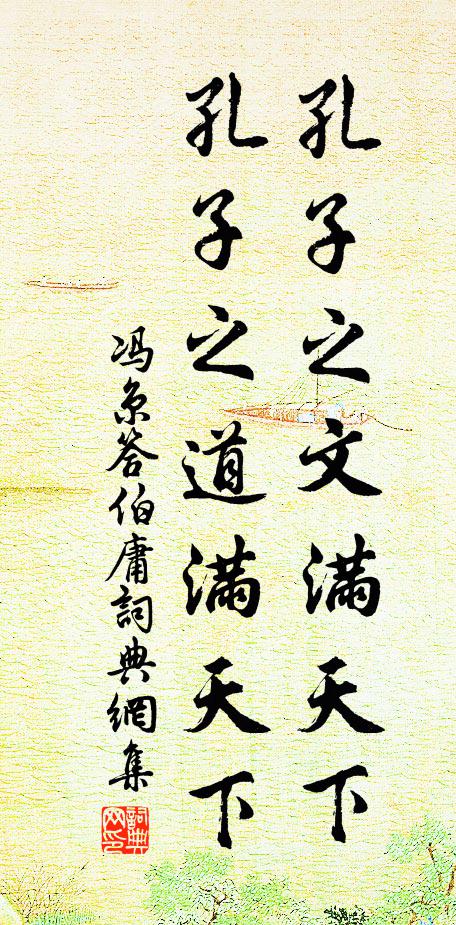 孔子之文满天下
孔子之道满天下
冯京答伯庸詞典網集
詞典网印